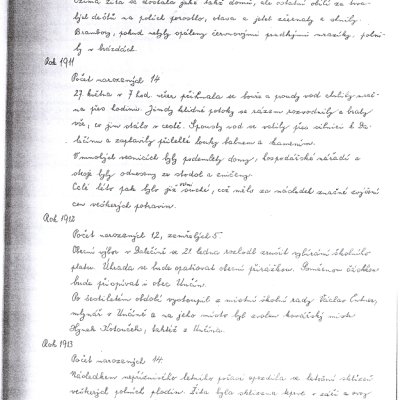 Ozimá žita se dostala ještě také domů, ale ostatní obilí za trva-
lých dešťů na polích porostlo, otava a jetel zčernaly a shnily.
Brambory, pokud nebyly spáleny červnovými prudkými mrazíky, pohni-
ly v brázdách.
Rok 1911
Počet narozených 14
27. května v 7 hod. večer přihnala se bouře a proudy vod chrlily
přes hodinu. Jindy klidné potoky se rázem rozvodnily a braly
vše, co jim stálo v cestě. Spousty vod se valily přes silnici k Da-
lečínu a zaplavily přilehlé louky bahnem a kamením.
V mnohých vesnicích byly podemlety domy, hospodářské nářadí a
stroje byly odneseny ze stodol a zničeny.
Celé léto pak bylo již suché, což mělo za následek značné zvýšení
cen veškerých potravin.
Rok 1912
Počet narozených 12, zemřelých 5
Obecní výbor v Dalečíně se 21. ledna rozhodl zrušit vybírání školního
platu. Úhrada se bude opatřovat obecní přirážkou. Poměrnou částkou
bude přispívat i obec Unčín.
Po šestiletém období vystoupil z místní školní rady Václav
mlynář v Unčíně a na jeho místo byl zvolen kovářský mistr
Hynek, taktéž z Unčína.
Rok 1913
Počet narozených 14
Následkem nepříznivého letního počasí opozdila se letošní sklizeň
veškerých polních plodin. Žita byla sklizena teprve v září a